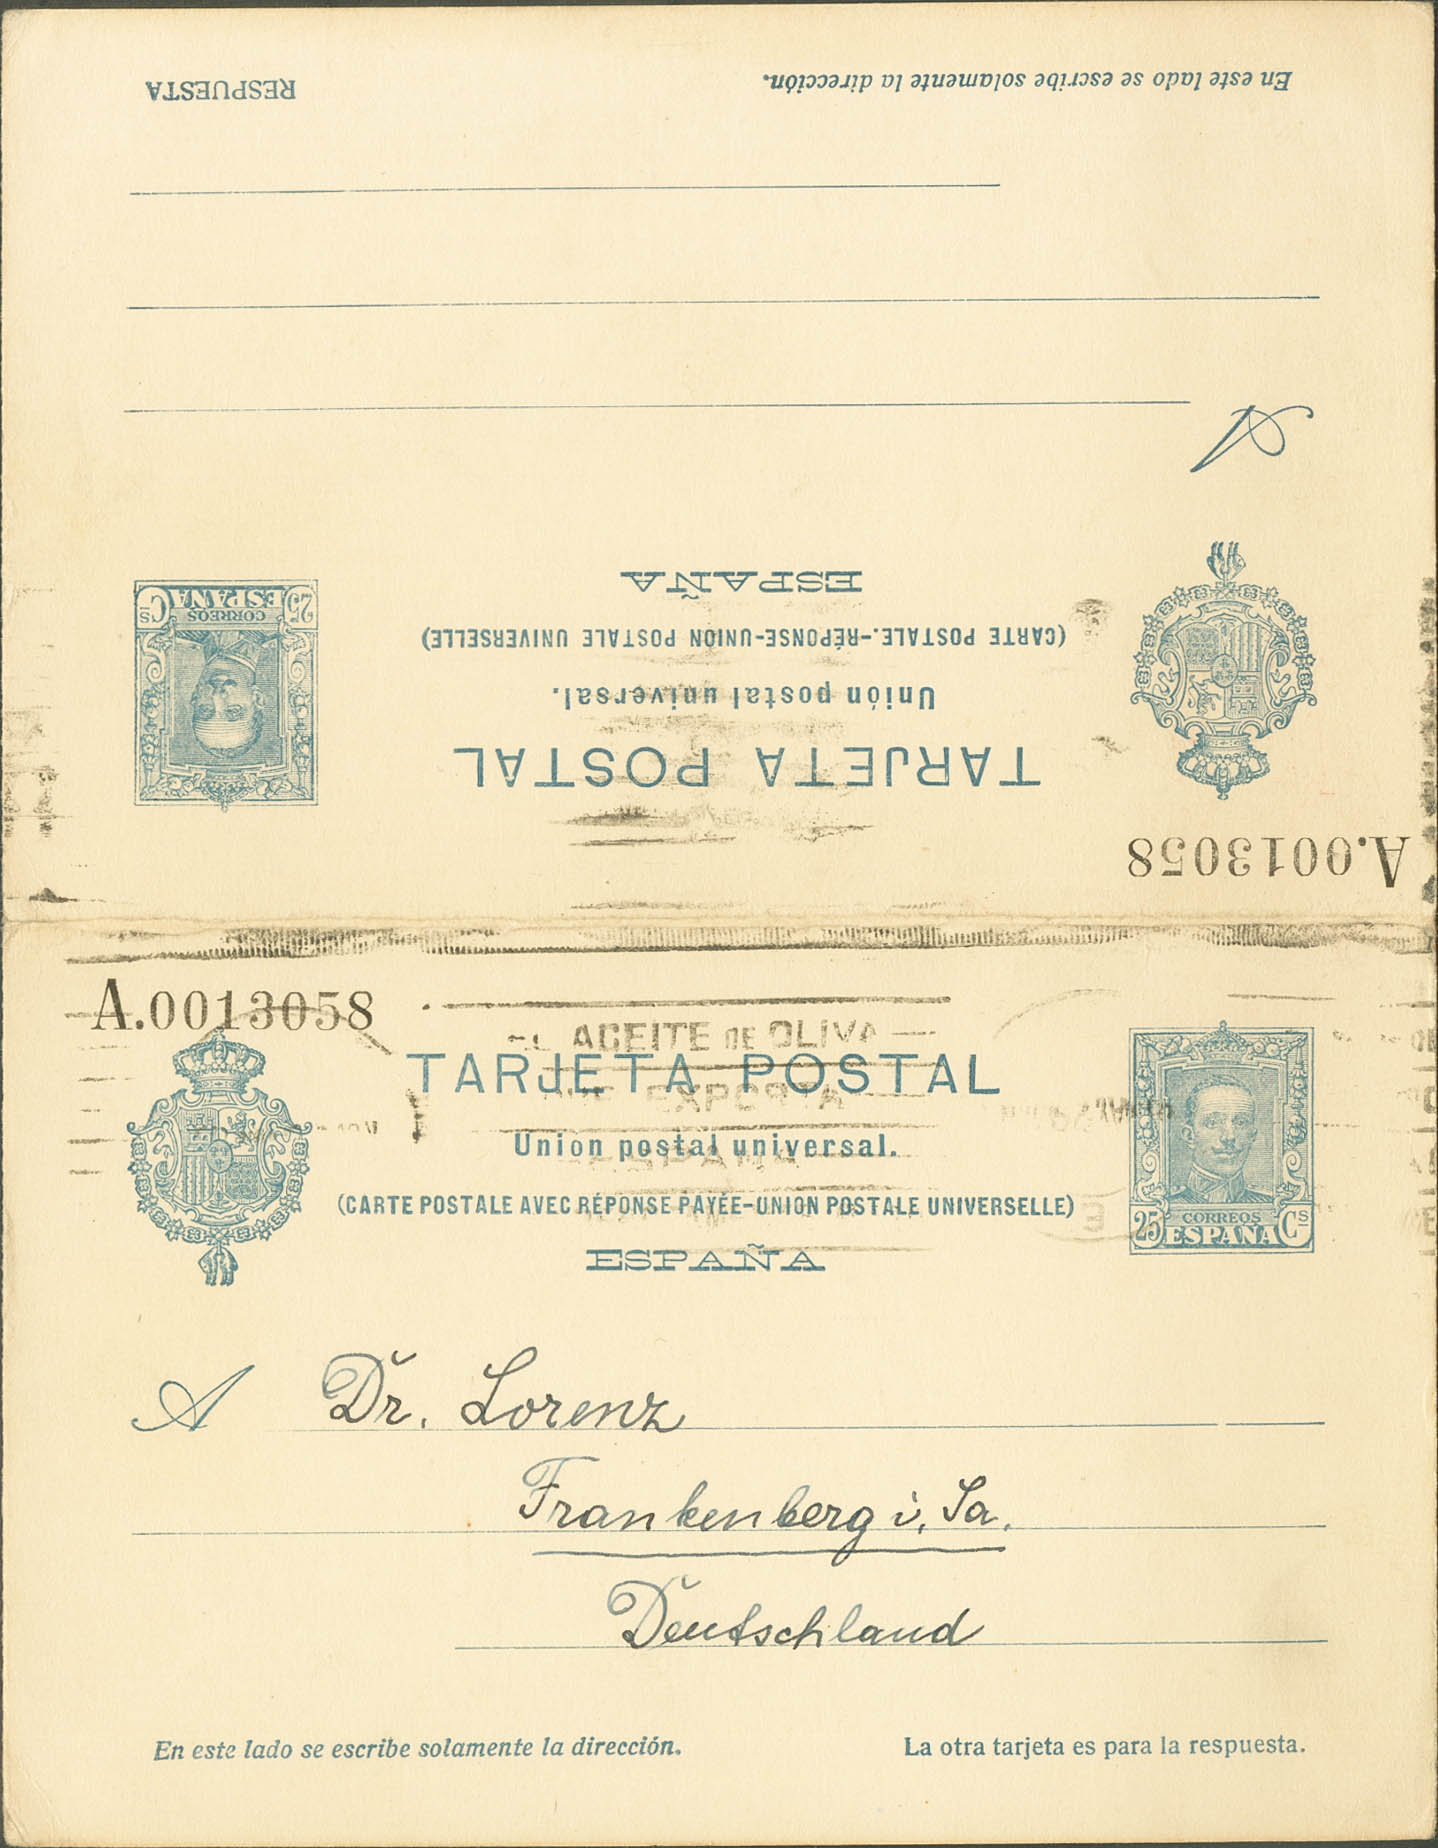 RESPUESTA
En este lado se escribe solamente la dirección.
A
ESPAÑA
(CARTE POSTALE.-RÉPONSE-UNION POSTALE UNIVERSELLE)
Unión postal universal.
TARJETA POSTAL
25 CORREOS Cs
ESPAÑA
A.0013058
A.0013058
ACEITE DE OLIVA
TARJETA POSTAL
Unión postal universal.
(CARTE POSTALE AVEC RÉPONSE PAYÉE-UNION POSTALE UNIVERSELLE)
ESPAÑA
25 CORREOS Cs
ESPAÑA
A Dr. Lorenz
Frankenberg i. Sa.
Deutschland
En este lado se escribe solamente la dirección.
La otra tarjeta es para la respuesta.